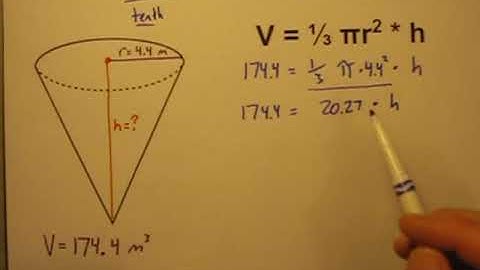 tenth
V = ⅓ πr² * h
r = 4.4 m
174.4 = ⅓ π · 4.4² · h
174.4 = 20.27 · h
h = ?
V = 174.4 m³